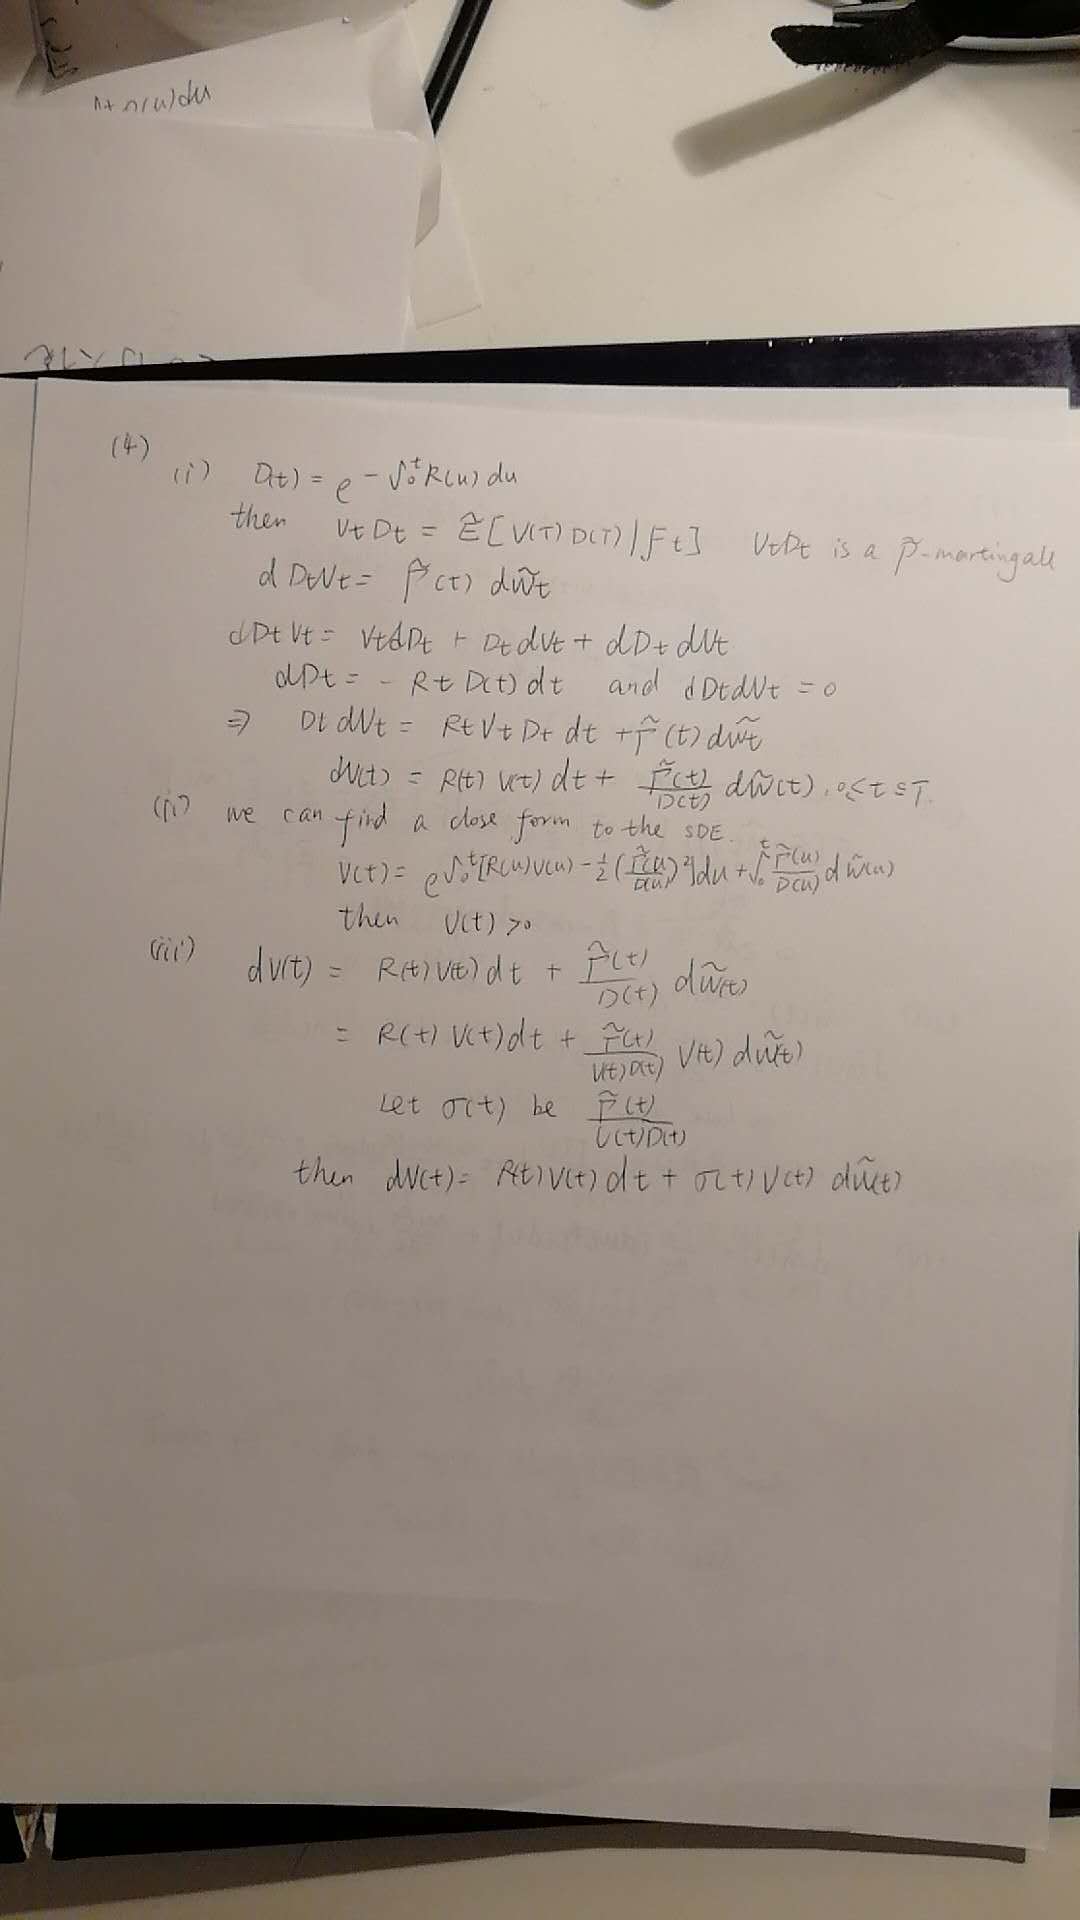 (u)du
(4)
(i) D(t) = e^{-∫_0^t R(u) du}
then VtDt = Ẽ[V(T)D(T)|Ft] VtDt is a P̃-martingale
d DtVt = Γ̃(t) dW̃t
dDtVt = VtdDt + DtdVt + dDtdVt
dDt = - Rt D(t) dt and dDtdVt = 0
⇒ DtdVt = RtVtDt dt + Γ̃(t) dW̃t
dV(t) = R(t) V(t) dt + Γ̃(t)/D(t) dW̃(t), 0≤t≤T.
(ii) we can find a close form to the SDE.
V(t) = e^{∫_0^t [R(u)V(u) - 1/2 (Γ̃(u)/D(u))^2] du + ∫_0^t Γ̃(u)/D(u) dW̃(u)}
then V(t) >0
(iii) dV(t) = R(t)V(t) dt + Γ̃(t)/D(t) dW̃(t)
= R(t) V(t) dt + Γ̃(t)/V(t)D(t) V(t) dW̃(t)
Let σ(t) be Γ̃(t)/V(t)D(t)
then dV(t) = R(t)V(t) dt + σ(t) V(t) dW̃(t)